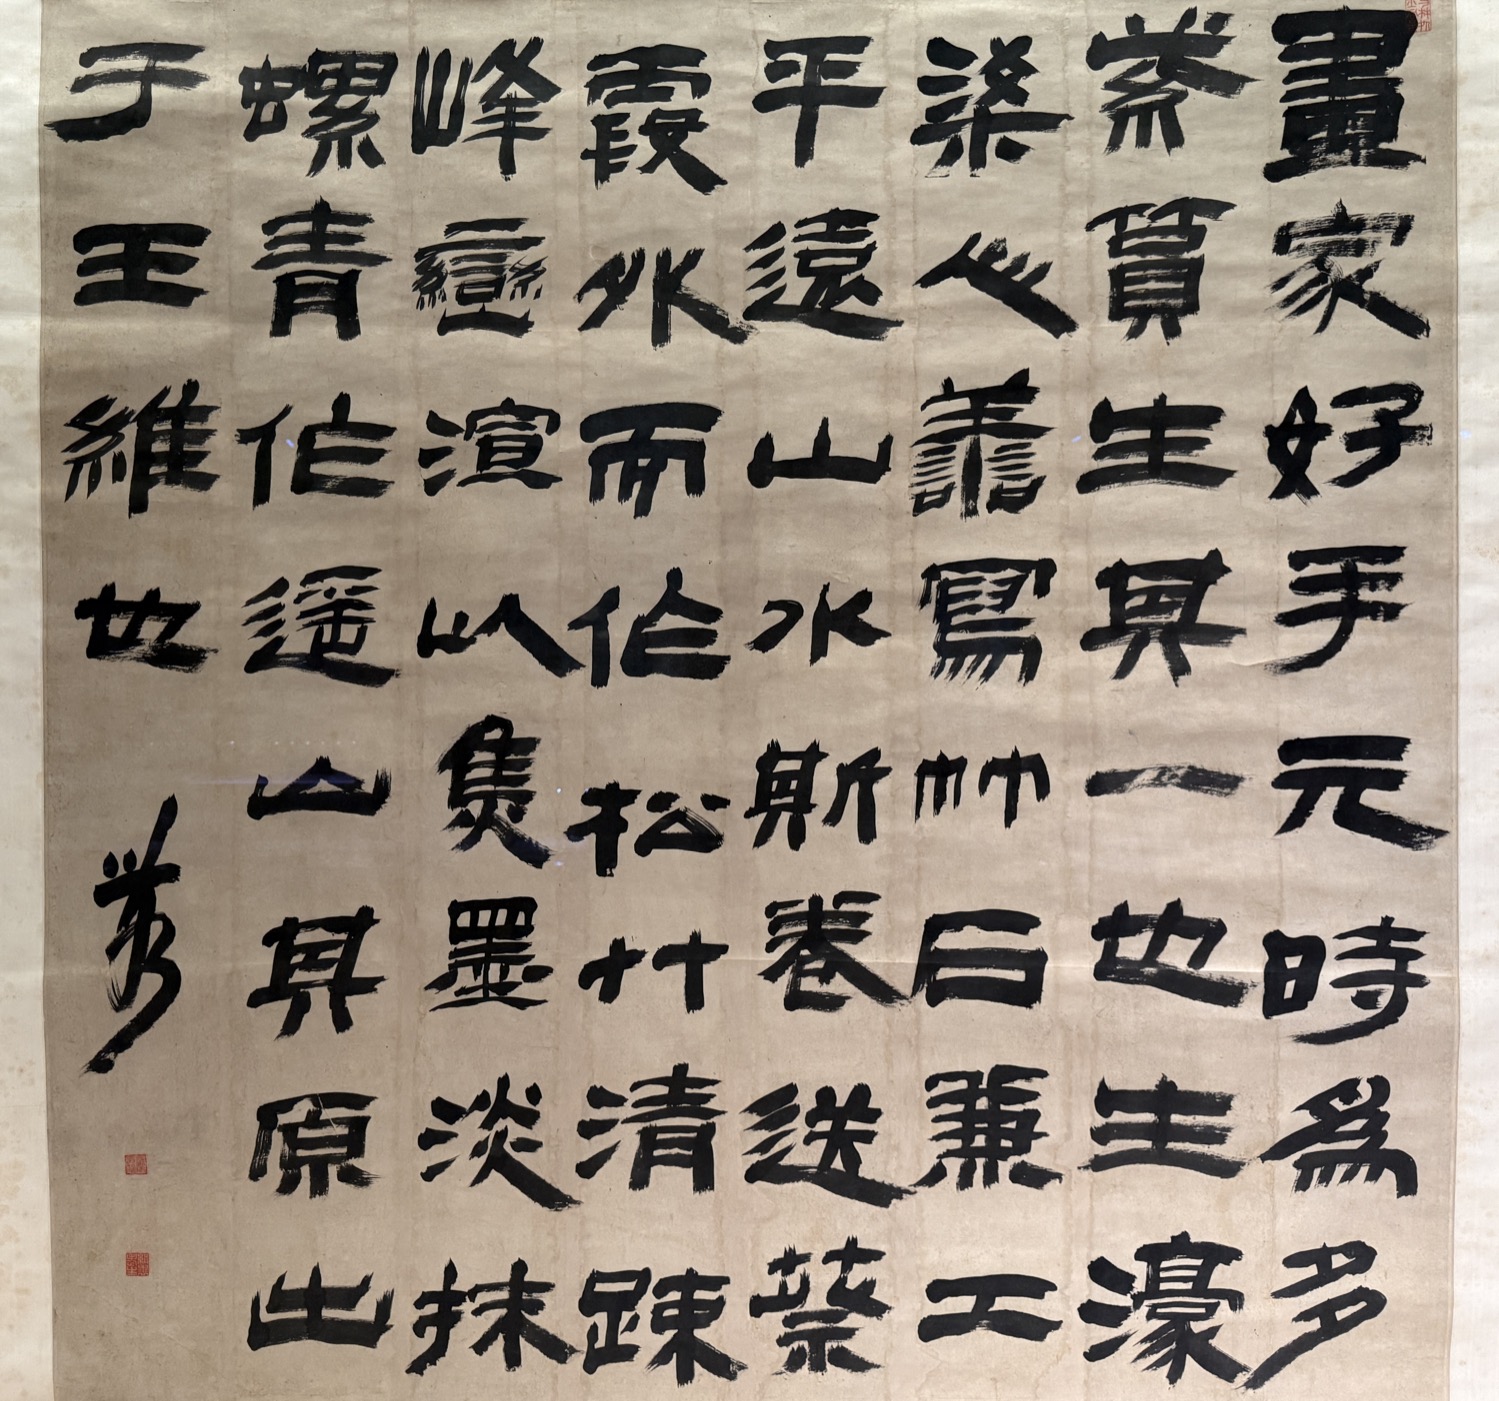 畫家好手元時為多
紫質生其一也生濠
梁心善寫竹石兼工
平遠山水斯卷送
霞外而作松艸清疎
峰巒渲以集墨淡抹
螺青作遥山其原出
于王維也